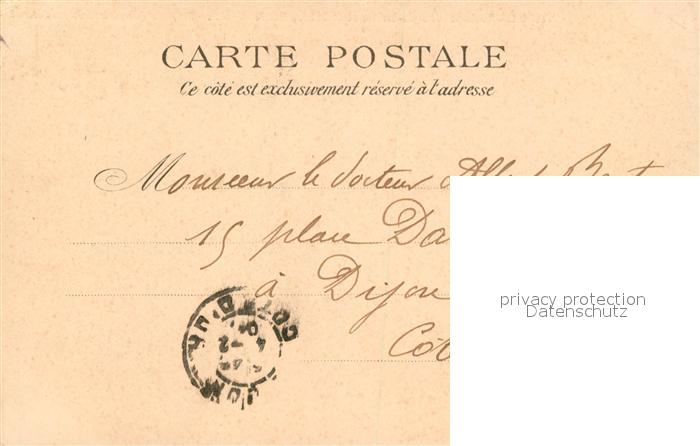 CARTE POSTALE
Ce côté est exclusivement réservé à l'adresse
Monsieur le docteur
15 place Da
à Dijon
Côt
COTE D'OR
privacy protection
Datenschutz